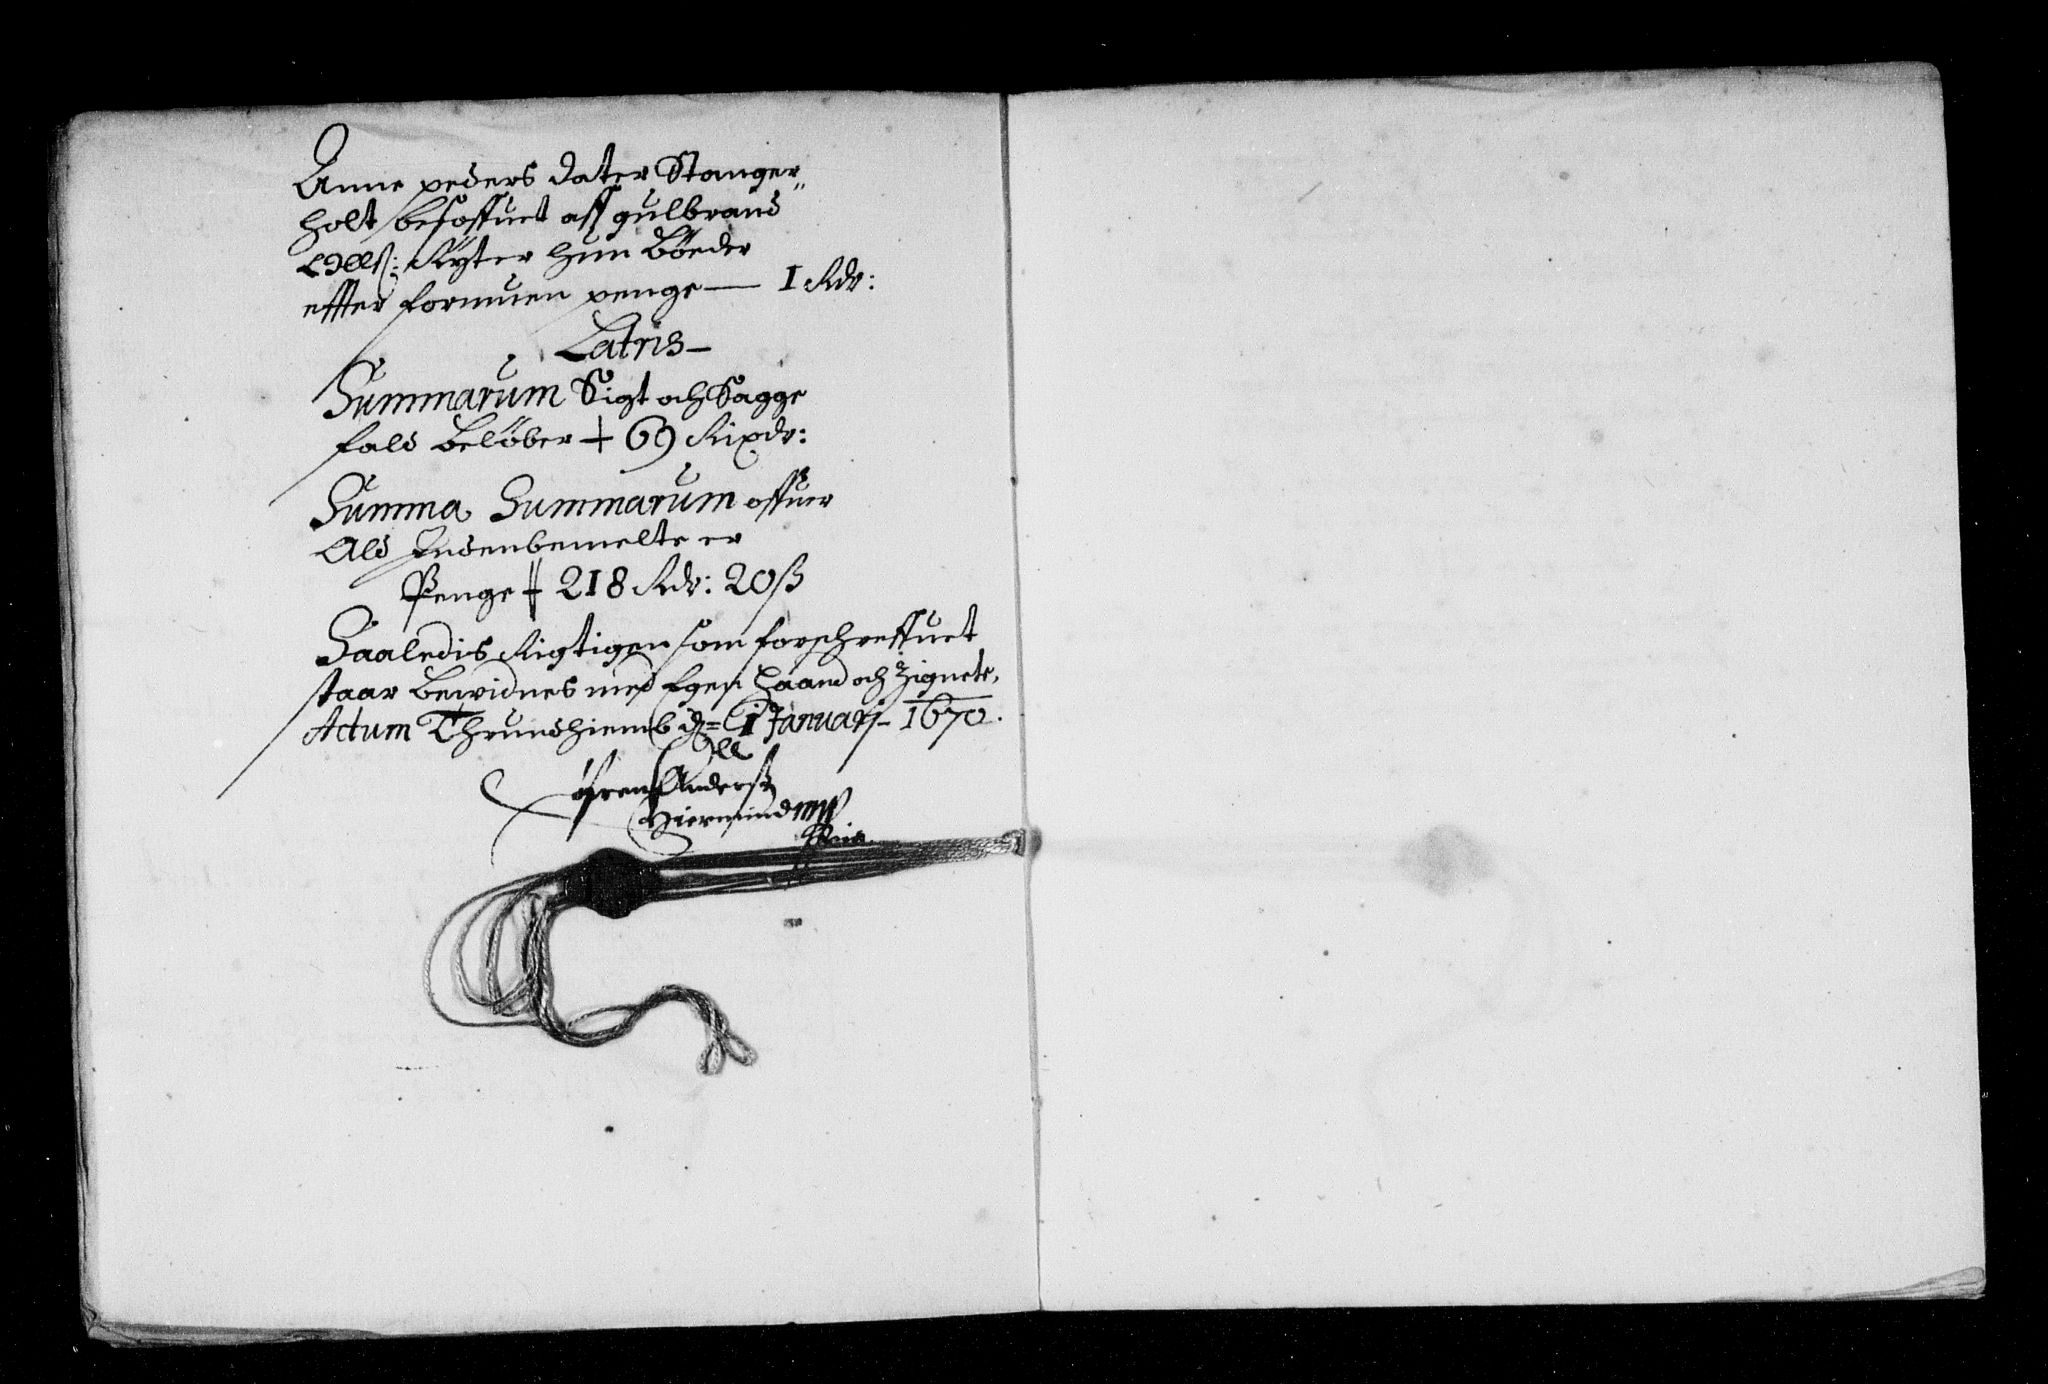 Anne peders dater Stanger„
holt besoffuet aff gulbrand
Ryter hun bøeder
effter formuen penge — 1 Rdr:
Latris —
Summarum Sigt och Sagge
fald beløber + 69 Rixdr:
Summa Summarum offuer
Ald Indenbemelte er
Penge ǂ 218 Rdr: 20 ß
Saaledis Rigtigen som forschreffuet
staar bewidnes med Egen haand och Zignete,
Actum Thrundhiemb d= 1 Januarj– 1670.
Søfren Anderß
Hiermind mp